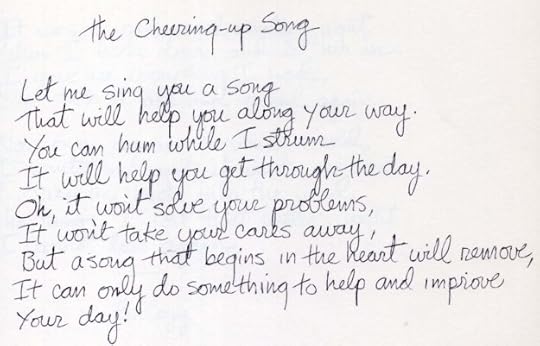 the Cheering-up Song
Let me sing you a song
That will help you along your way.
You can hum while I strum
It will help you get through the day.
Oh, it wont solve your problems,
It won't take your cares away,
But a song that begins in the heart will remove,
It can only do something to help and improve
Your day!